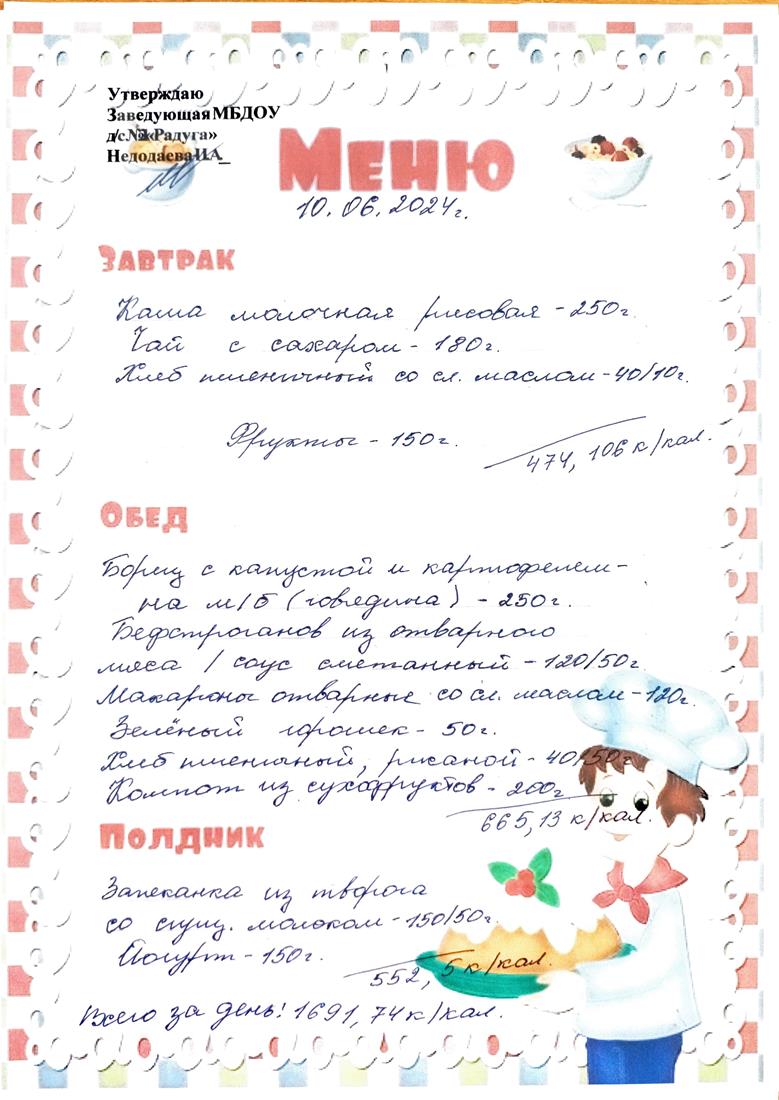 Утверждаю
Заведующая МБДОУ
д/с «Радуга»
Недодаева И.А_
Меню
10.06.2024г.
Завтрак
Каша молочная рисовая - 250г.
Чай с сахаром - 180г.
Хлеб пшеничный со сл. маслом - 40/10г.
Фрукты - 150г.
474, 106 к/кал.
Обед
Борщ с капустой и картофелем -
на м/б (говядина) - 250г.
Бефстроганов из отварного
мяса / соус сметанный - 120/50г.
Макароны отварные со сл. маслом - 120г.
Зелёный горошек - 50г.
Хлеб пшеничный, ржаной - 40/50г
Компот из сухофруктов - 200г
665,13 к/кал.
Полдник
Запеканка из творога
со сгущ. молоком - 150/50г.
Йогурт - 150г.
552, 5 к/кал.
Всего за день! 1691,74 к/кал.